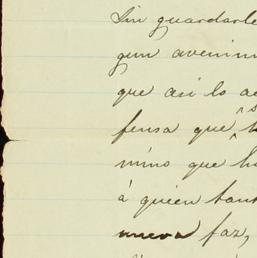 Sin guardarle
gun avenim
que asi lo a
fensa que s
mino que h
á quien tan
nueva faz,